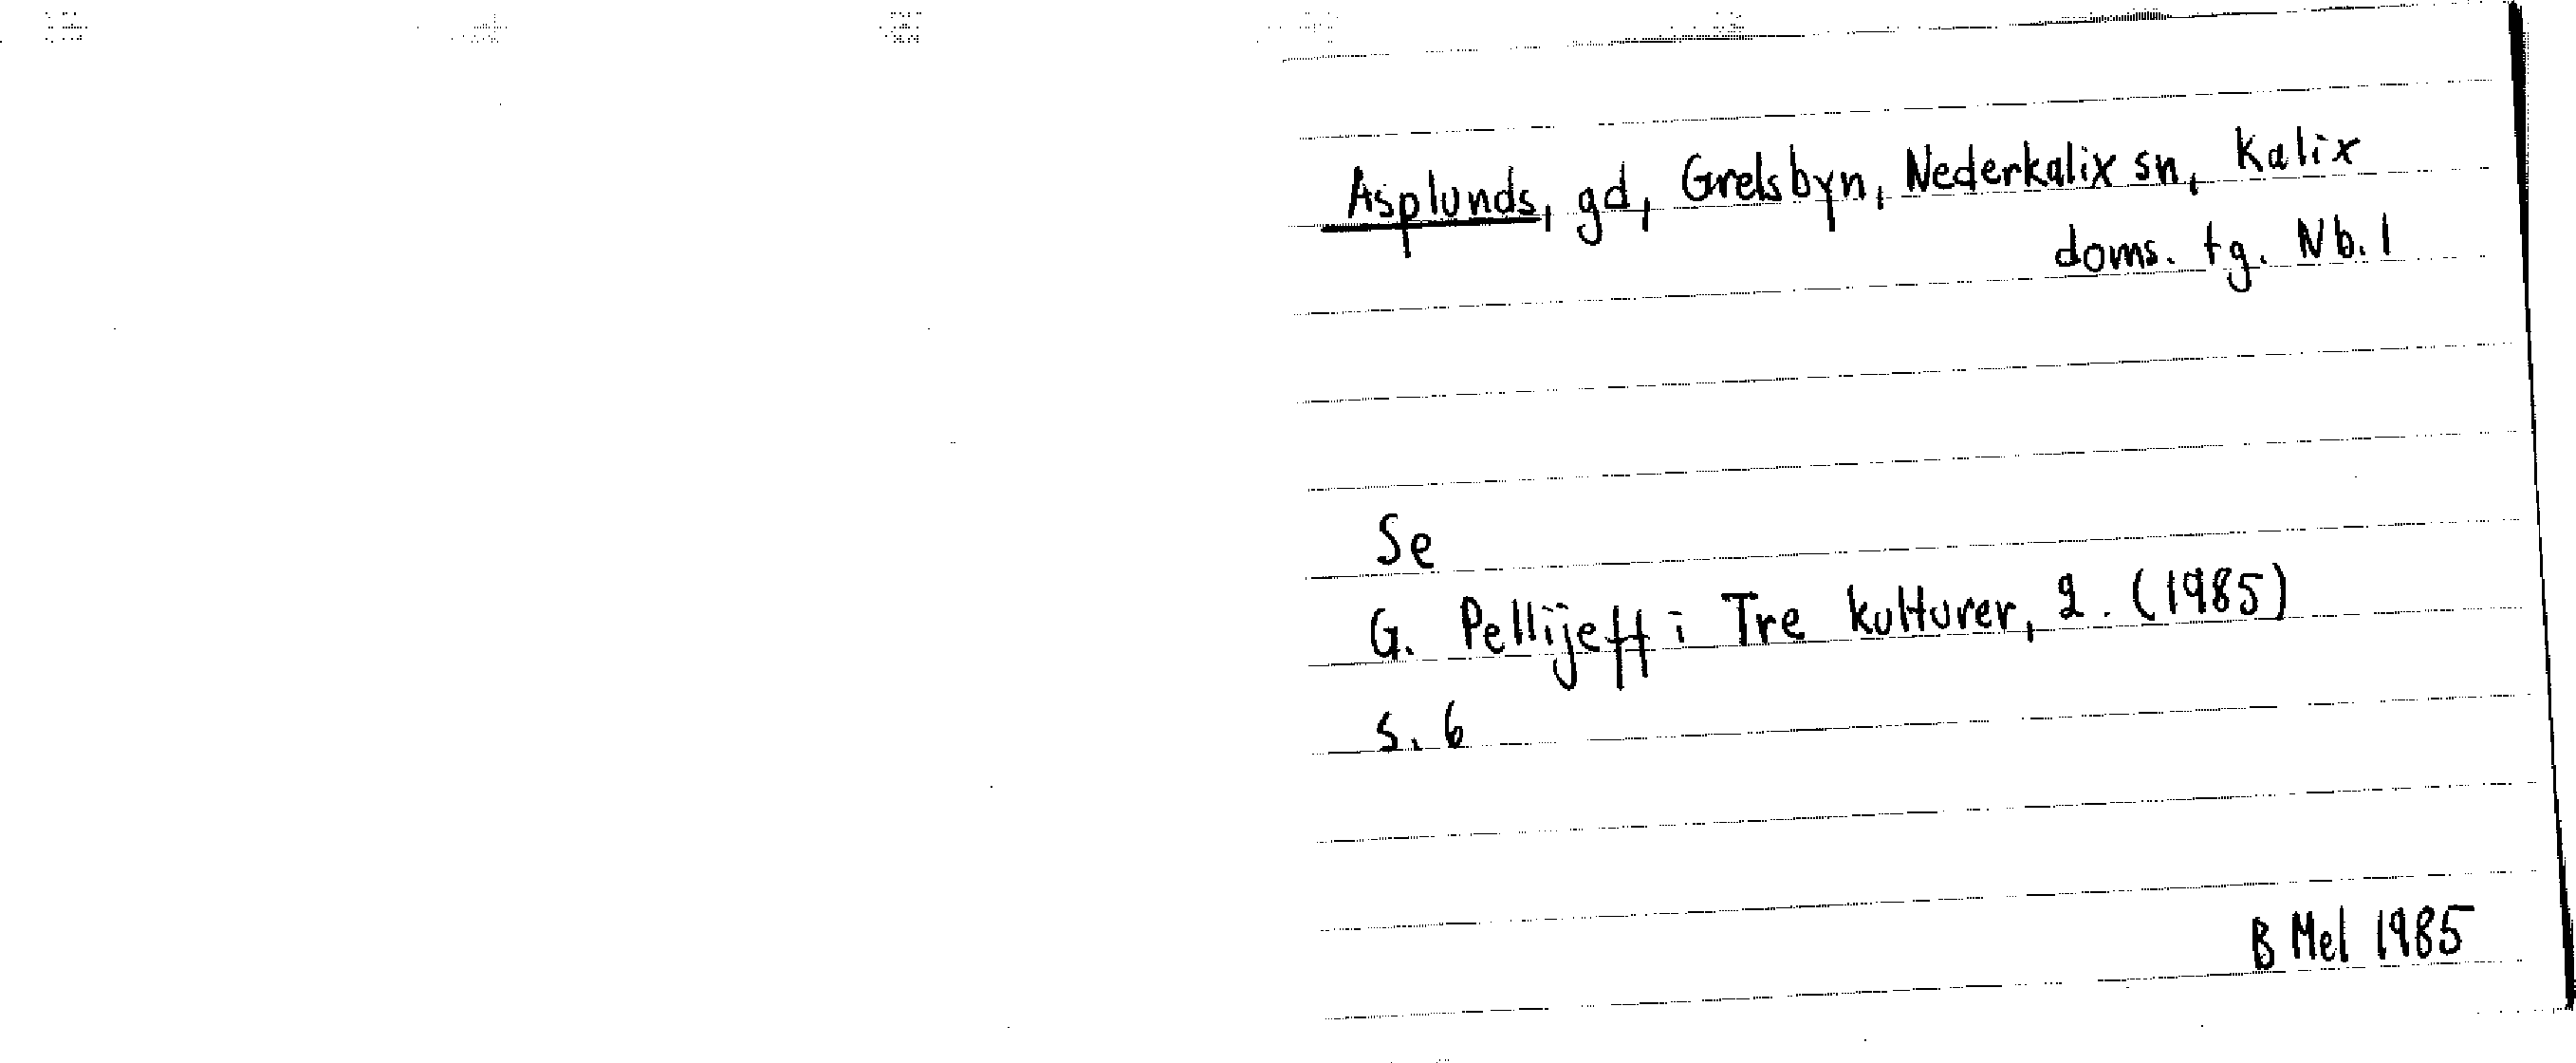 Asplunds, gd, Grelsbyn, Nederkalix sn, Kalix
doms. tg. Nb. l
Se
G. Pellijeff i Tre kulturer, 2. (1985)
s. 6
B Mel 1985